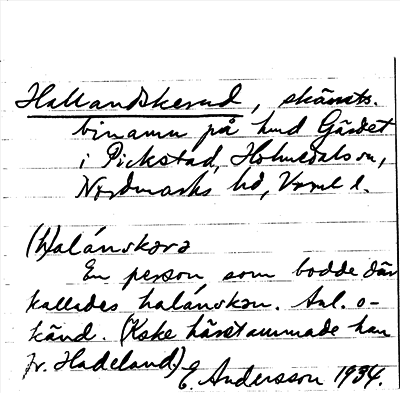 Hallandskerud, skämts.
binamn på hmd Gärdet
i Pickstad, Holmedals sn,
Nordmarks hd, Vrml l.
(h)alánskərə
En person som bodde där
kallades halánskən. Anl. o-
känd. (Kske härstammade han
fr. Hadeland) E. Andersson 1934.